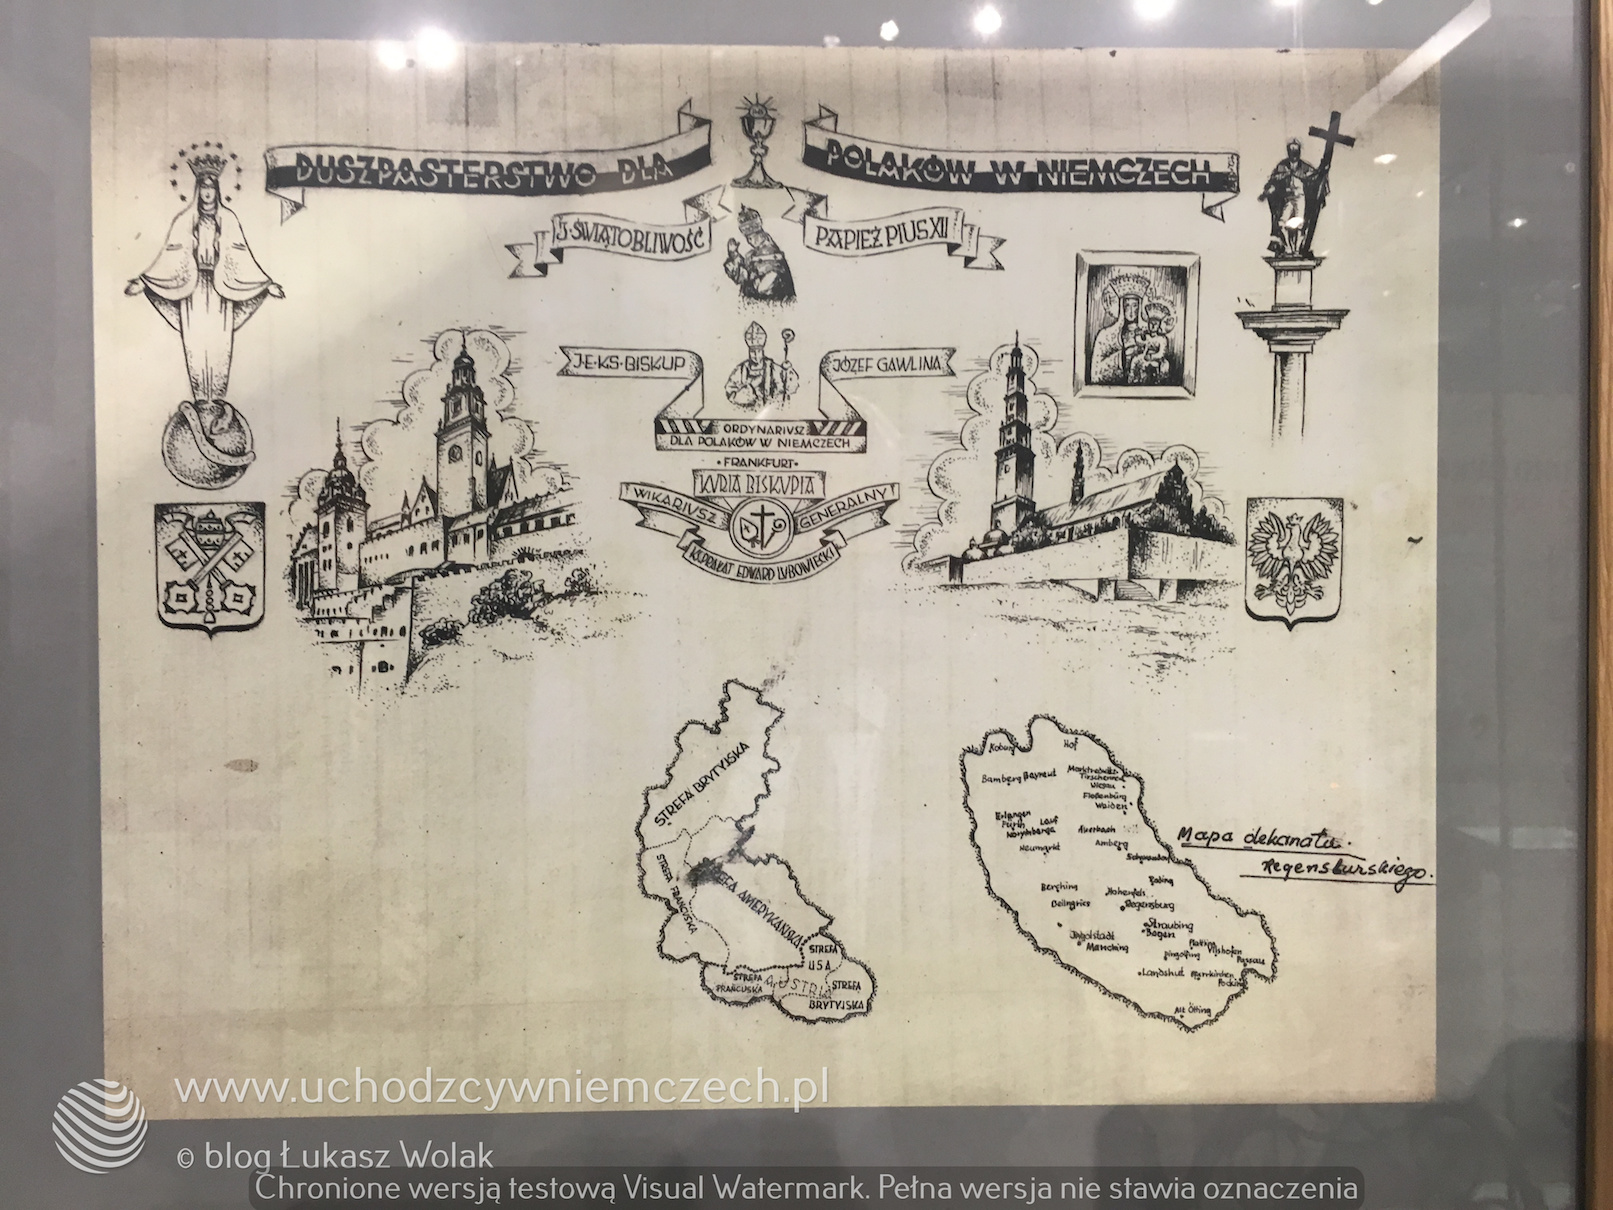 DUSZPASTERSTWO DLA
POLAKÓW W NIEMCZECH
J. ŚWIĄTOBLIWOŚĆ
PAPIEŻ PIUS XII
J.E.KS. BISKUP
JÓZEF GAWLINA
ORDYNARIUSZ
DLA POLAKÓW W NIEMCZECH
• FRANKFURT •
KURIA BISKUPIA
WIKARIUSZ
GENERALNY
KS. PRAŁAT EDWARD LUBOWIECKI
STREFA BRYTYJSKA
STREFA FRANCUSKA
AMERYKAŃSKA
STREFA
USA
STREFA
FRANCUSKA
AUSTRIA
STREFA
BRYTYJSKA
Koburg
Hof
Bamberg
Bayreut
Tirschenreut
Flossenbürg
Weiden
Erlangen
Fürth
Lauf
Norymberga
Auerbach
Neumarkt
Amberg
Schwandorf
Roding
Berching
Hohenfels
Beilngries
Regensburg
Straubing
Bogen
Ingolstadt
Manching
Plattling
Vilshofen
Dingolfing
Passau
Landshut
Pfarrkirchen
Pocking
Alt Ötting
Mapa dekanatu
Regensburskiego.
www.uchodzcywniemczech.pl
© blog Łukasz Wolak
Chronione wersją testową Visual Watermark. Pełna wersja nie stawia oznaczenia